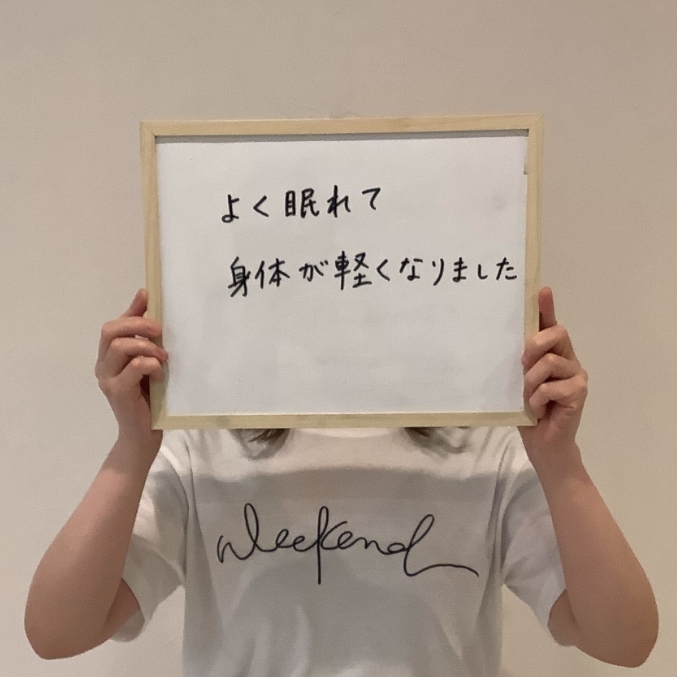 よく眠れて
身体が軽くなりました
weekend